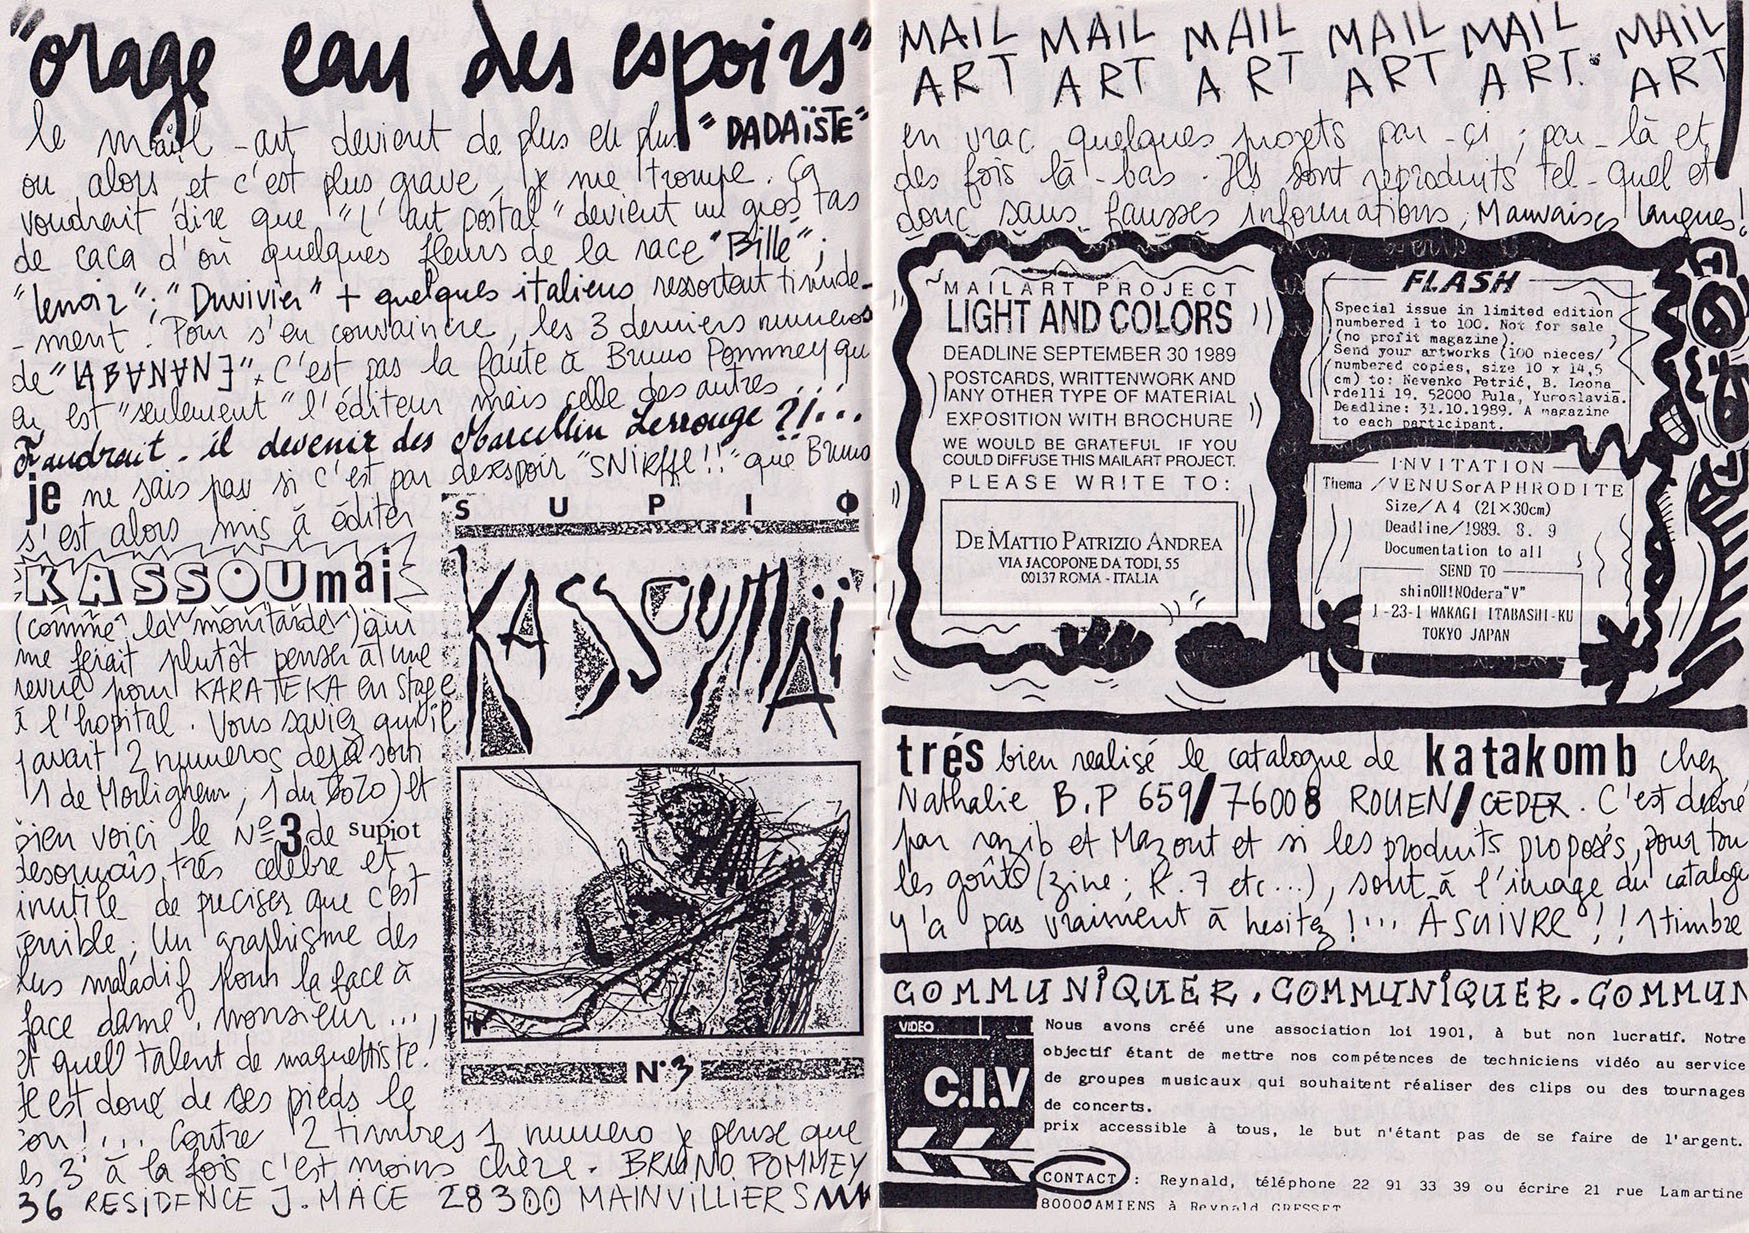 "orage eau des espoirs"
le mail-art devient de plus en plus "DADAïSTE"
ou alors, et c'est plus grave, je me trompe. Ça
voudrait dire que "l'art postal" devient un gros tas
de caca d'où quelques fleurs de la race "Bille";
"lenoir"; "Duvivier" + quelques italiens ressortent timide-
-ment. Pour s'en convaincre, les 3 derniers numeros
de "LABANANE". C'est pas la faute à Bruno Pommey qui
en est "seulement" l'éditeur mais celle des autres...
Faudrait-il devenir des Marcellin Lerrouge ?!...
je ne sais pas si c'est par desespoir "SNIRFFL!!" que Bruno
s'est alors mis à éditer
KASSOUmai
(comme la moutarde) qui
me ferait plutôt penser à une
revue pour KARATEKA en stage
à l'hopital. Vous saviez qu'il
y avait 2 numeros dejà sorti
1 de Morligheur; 1 du Bozo) et
bien voici le Nº3 de supiot
desormais très célèbre et
inutile de preciser que c'est
terrible. Un graphisme des
plus maladif pour la face à
face dame, monsieur...
et quel talent de maquettiste!
Je est donc de ses pieds le
con!... Contre 2 timbres 1 numero je pense que
les 3 à la fois c'est moins chère. BRUNO POMMEY
36 RESIDENCE J. MACE 28300 MAINVILLIERS
S U P I O
KASSOUMAÏ
N°3
MAIL MAIL MAIL MAIL MAIL MAIL
ART ART ART ART ART. ART
en vrac quelques projets par-çi; par-là et
des fois là-bas. Ils sont reproduits tel-quel et
donc sans fausses informations, Mauvaises langues!
MAILART PROJECT
LIGHT AND COLORS
DEADLINE SEPTEMBER 30 1989
POSTCARDS, WRITTENWORK AND
ANY OTHER TYPE OF MATERIAL
EXPOSITION WITH BROCHURE
WE WOULD BE GRATEFUL IF YOU
COULD DIFFUSE THIS MAILART PROJECT.
PLEASE WRITE TO:
DE MATTIO PATRIZIO ANDREA
VIA JACOPONE DA TODI, 55
00137 ROMA - ITALIA
FLASH
Special issue in limited edition
numbered 1 to 100. Not for sale
(no profit magazine).
Send your artworks (100 pieces/
numbered copies, size 10 x 14,5
cm) to: Nevenko Petrić, B. Leona_
rdelli 19, 52000 Pula, Yugoslavia.
Deadline: 31.10.1989. A magazine
to each participant.
INVITATION
Thema /VENUSorAPHRODITE
Size/A4 (21×30cm)
Deadline/1989. 8. 9
Documentation to all
SEND TO
shinOH!NOdera"V"
1-23-1 WAKAGI ITABASHI-KU
TOKYO JAPAN
trés bien realisé le catalogue de katakomb chez
Nathalie B.P 659/76008 ROUEN/CEDEX. C'est decoré
par razib et Mazout et si les produits proposés, pour tou
les goûts (zine; K.7 etc...), sont à l'image du catalogue
y'a pas vraiment à hesitez!... À SUIVRE!! 1 timbre
COMMUNiQUER. COMMUNiQUER. COMMUN
VIDEO
C.I.V
Nous avons créé une association loi 1901, à but non lucratif. Notre
objectif étant de mettre nos compétences de techniciens vidéo au service
de groupes musicaux qui souhaitent réaliser des clips ou des tournages
de concerts.
prix accessible à tous, le but n'étant pas de se faire de l'argent.
CONTACT : Reynald, téléphone 22 91 33 39 ou écrire 21 rue Lamartine
80000AMIENS à Reynald GRESSET